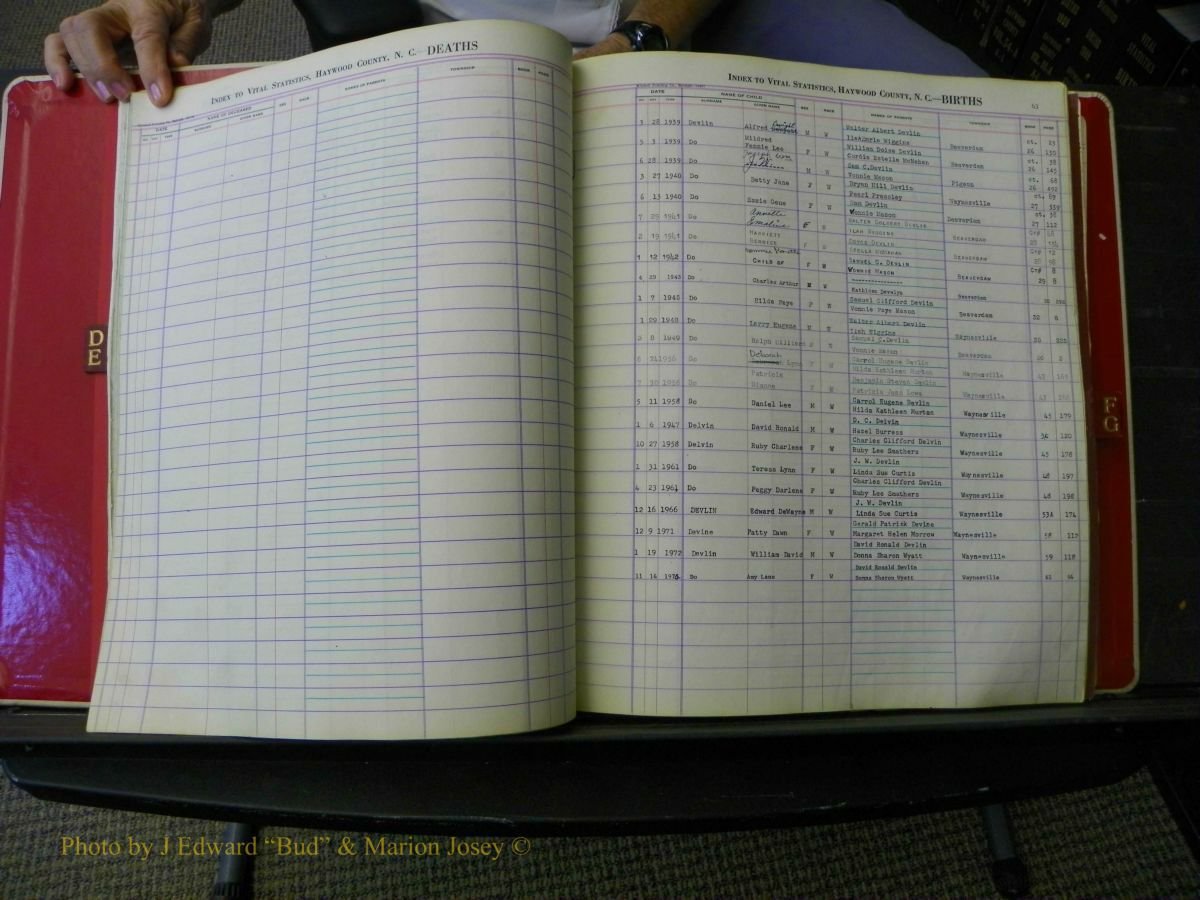 INDEX TO VITAL STATISTICS, HAYWOOD COUNTY, N. C.—DEATHS
DATE NAME OF DECEASED SEX RACE NAMES OF PARENTS TOWNSHIP BOOK PAGE
SURNAME GIVEN NAME
INDEX TO VITAL STATISTICS, HAYWOOD COUNTY, N. C.—BIRTHS
DATE NAME OF CHILD SEX RACE NAMES OF PARENTS TOWNSHIP BOOK PAGE
SURNAME GIVEN NAME
3 28 1939 Devlin Alfred Dwight M W Walter Albert Devlin
Wiggins Beaverdam
5 3 1939 Do Mildred
Fannie Lee F W William Doise Devlin
Curdie Estelle McMahan Beaverdam 26 145
6 28 1939 Do M W Sam C. Devlin
Vonnie Mason Pigeon 26 492
3 27 1940 Do Betty Jane F W Bryan Hill Devlin
Pearl Pressley Waynesville 27
6 13 1940 Do Susie Gene F W Sam Devlin
Vonnie Mason Beaverdam 27 112
7 29 1941 Do Annette
Emaline F WALTER DEVLIN
BEAVERDAM
2 19 1941 Do HARRIETT
BERNICE DOYCE DEVLIN
BEAVERDAM
1 12 1942 Do CHILD OF F W SAMUEL C. DEVLIN
VONNIE MASON BEAVERDAM 29 8
4 29 1943 Do Charles Arthur M W
Kathleen Devalyn Beaverdam
1 7 1945 Do Hilda Faye F W Samuel Clifford Devlin
Vonnie Faye Mason Beaverdam 32 8
1 1948 Do Larry Eugene M W Walter Albert Devlin
Ilah Wiggins Waynesville
2 8 1949 Do Ralph William Samuel C. Devlin
Vonnie Mason Beaverdam 36 2
1956 Do Deborah
Lynn F W Carrol Eugene Devlin
Hilda Kathleen Murton Waynesville
7 30 1956 Do Patricia
Dianne F W Benjamin Steven Devlin
Patricia Jean Lowe Waynesville
5 11 1958 Do Daniel Lee M W Carrol Eugene Devlin
Hilda Kathleen Murton Waynesville 45 179
1 6 1947 Delvin David Ronald M W D. C. Delvin
Hazel Burress Waynesville 34 120
10 27 1958 Delvin Ruby Charlene F W Charles Clifford Delvin
Ruby Lee Smathers Waynesville 45 178
1 31 1961 Do Teresa Lynn F W J. W. Devlin
Linda Sue Curtis Waynesville 48 197
4 23 1961 Do Peggy Darlene F W Charles Clifford Devlin
Ruby Lee Smathers Waynesville 48 198
12 16 1966 DEVLIN Edward DeWayne M W J. W. Devlin
Linda Sue Curtis Waynesville 53A 174
12 9 1971 Devine Patty Dawn F W Gerald Patrick Devine
Margaret Helen Morrow Waynesville 58 112
1 19 1972 Devlin William David M W David Ronald Devlin
Donna Sharon Wyatt Waynesville 59 118
11 14 Do Amy Lane F W David Ronald Devlin
Donna Sharon Wyatt Waynesville
D
E
F
G
Photo by J Edward “Bud” & Marion Josey ©